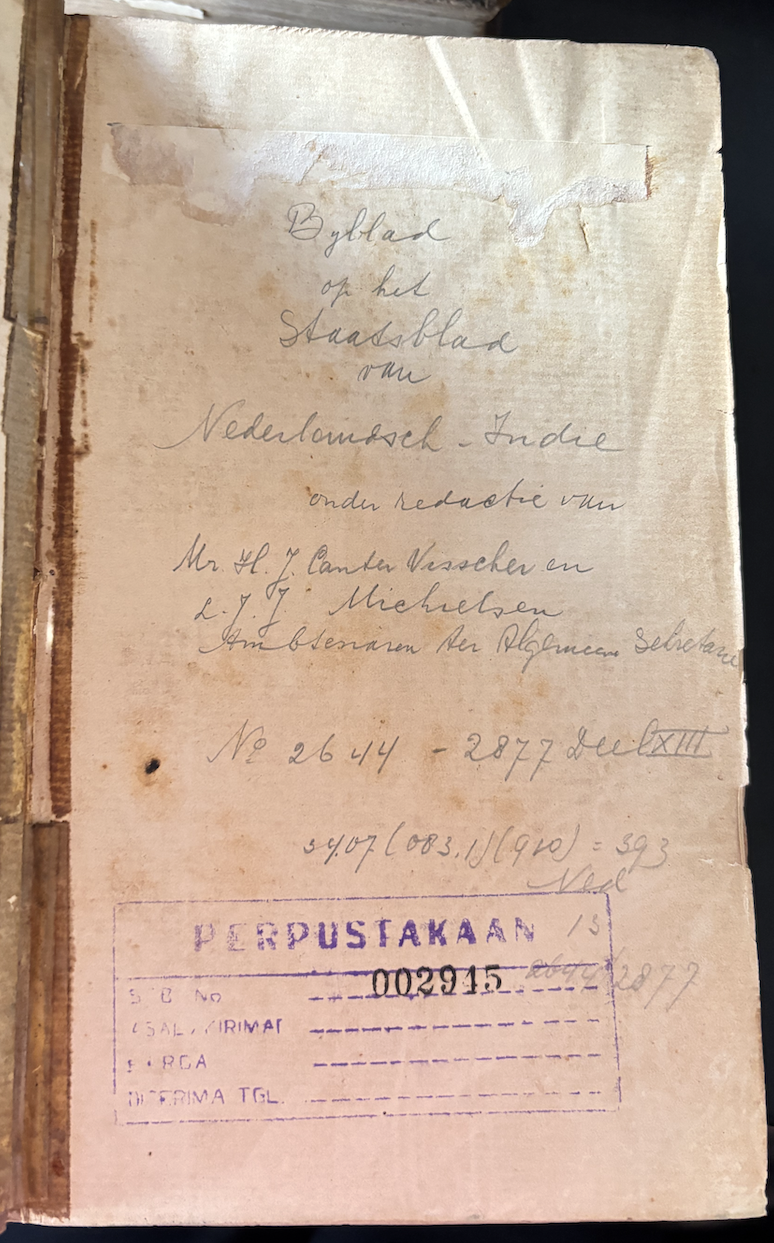 Byblad
op het
Staatsblad
van
Nederlandsch - Indie
onder redactie van
Mr. H. J. Canter Visscher en
L. J. J. Michielsen
Ambtenaren ter Algemeene Secretarie
No 2644 - 2877 Deel XIII
34.07 (083.1)(910) = 393
Ned
PERPUSTAKAAN 13
002915 2644/2877
No
HARGA
DITERIMA TGL.